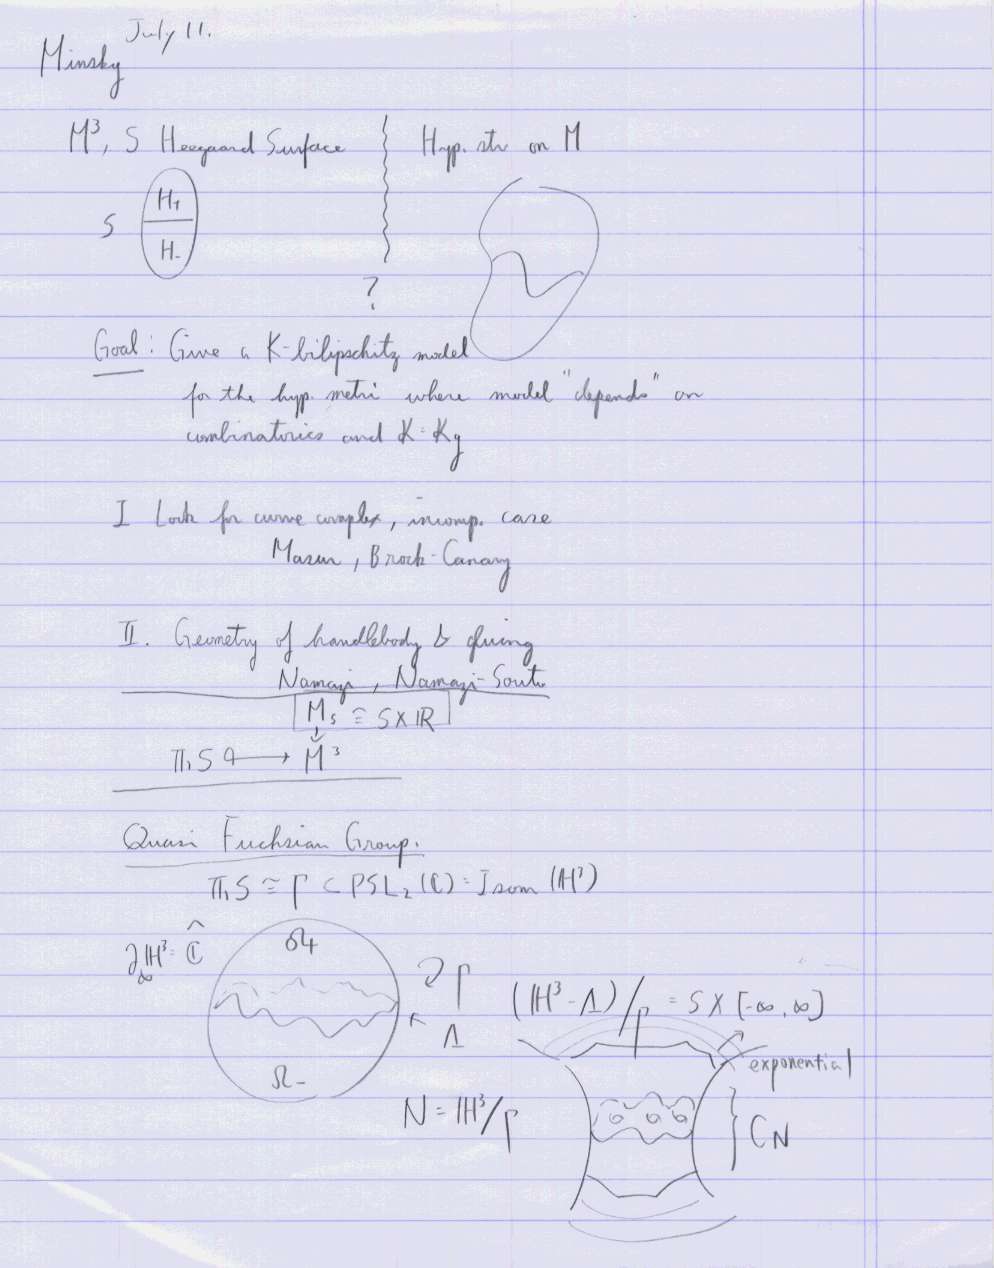 July 11.
Minsky
M³, S Heegaard Surface
Hyp. str on M
S H+
H-
?
Goal: Give a K-bilipschitz model
for the hyp. metri where model "depends" on
combinatorics and K=Kg
I Look for curve complex, incomp. case
Masur, Brock-Canary
II. Geometry of handlebody & gluing
Namazi, Namazi-Souto
M_S ≅ S×ℝ
π₁S ↪ M³
Quasi Fuchsian Group.
π₁S ≅ Γ ⊂ PSL₂(ℂ) = Isom(ℍ³)
∂∞ℍ³ = ℂ̂
Ω+
Γ
Λ
Ω-
(ℍ³-Λ)/Γ = S×[-∞,∞]
exponential
N=ℍ³/Γ
C_N